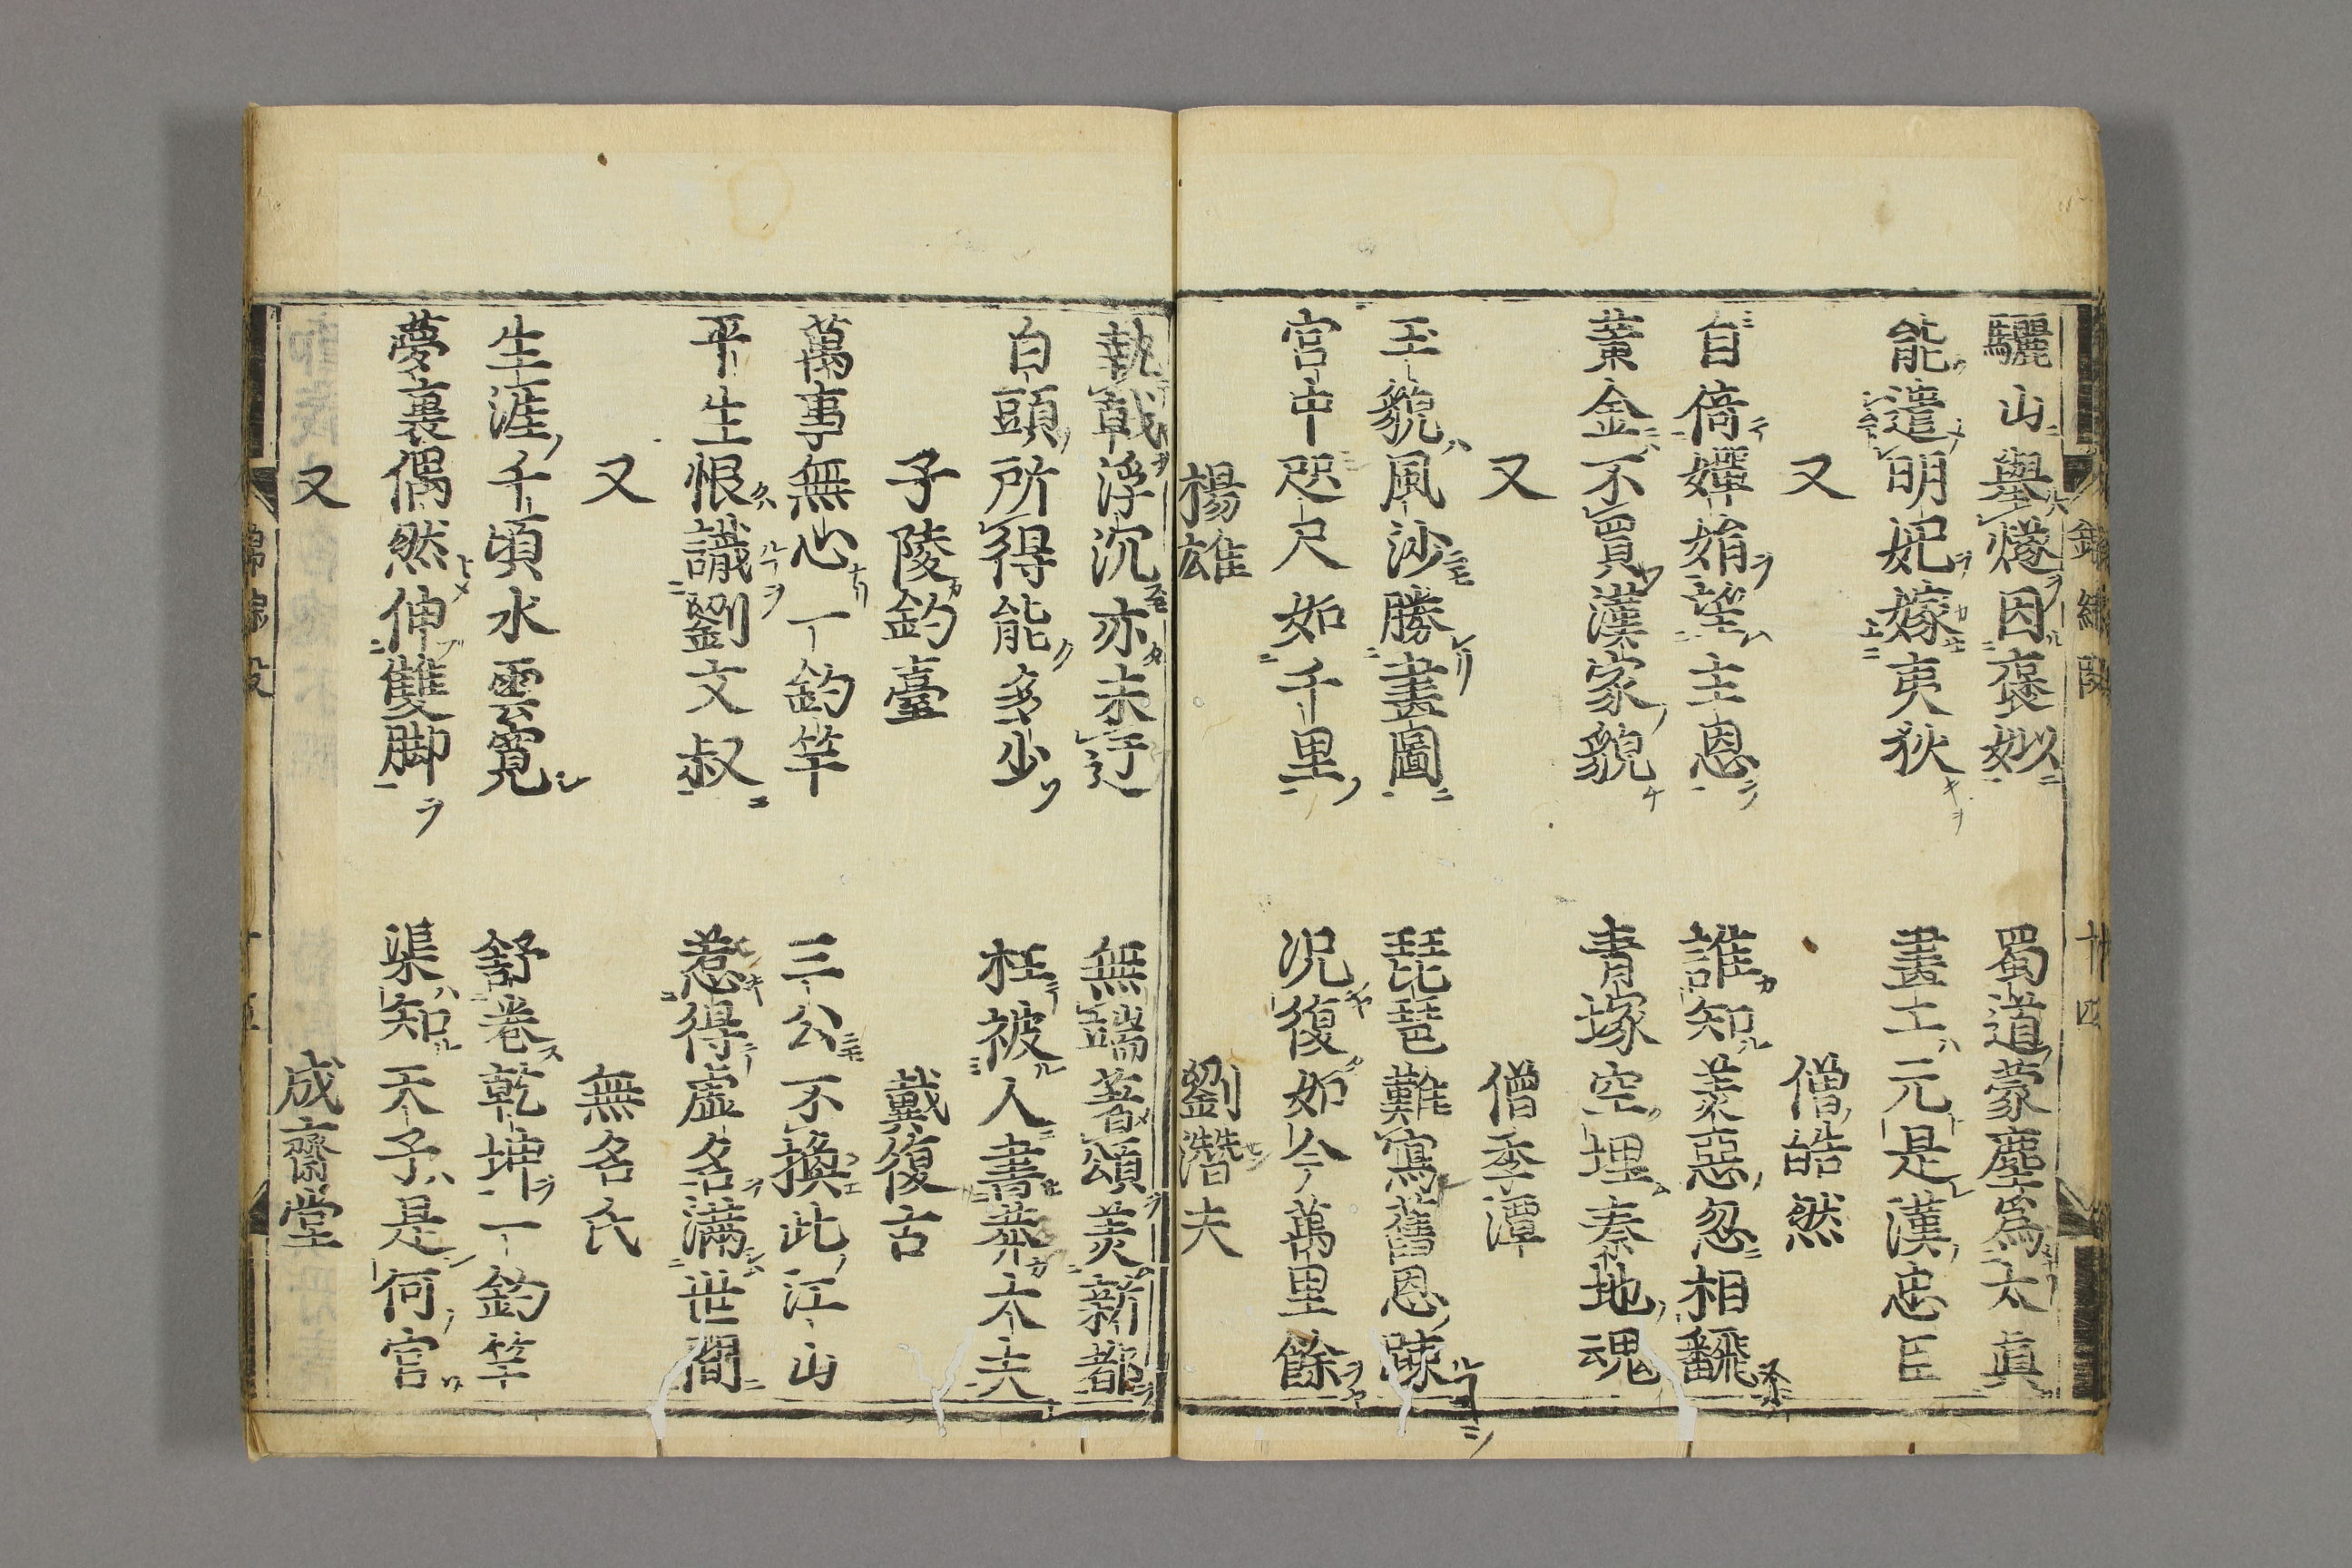 驪山擧燧因褒姒　蜀道蒙塵爲太眞
能遣明妃嫁夷狄　畫工元是漢忠臣
又　僧皓然
自倚嬋娟望主恩　誰知美惡忽相飜
黄金不買漢家貌　青塚空埋秦地魂
又　僧季潭
玉貌風沙勝畫圖　琵琶難寫舊恩疎
宮中咫尺如千里　况復如今萬里餘
楊雄　劉潛夫
執戟浮沉亦未迂　無端著頌美新都
白頭所得能多少　枉被人書莽大夫
子陵釣臺　戴復古
萬事無心一釣竿　三公不換此江山
平生恨識劉文叔　惹得虚名滿世間
又　無名氏
生涯千頃水雲寛　舒卷乾坤一釣竿
夢裏偶然伸雙脚　渠知天子是何官
又　成齋堂
錦繡段　十四
錦繡段